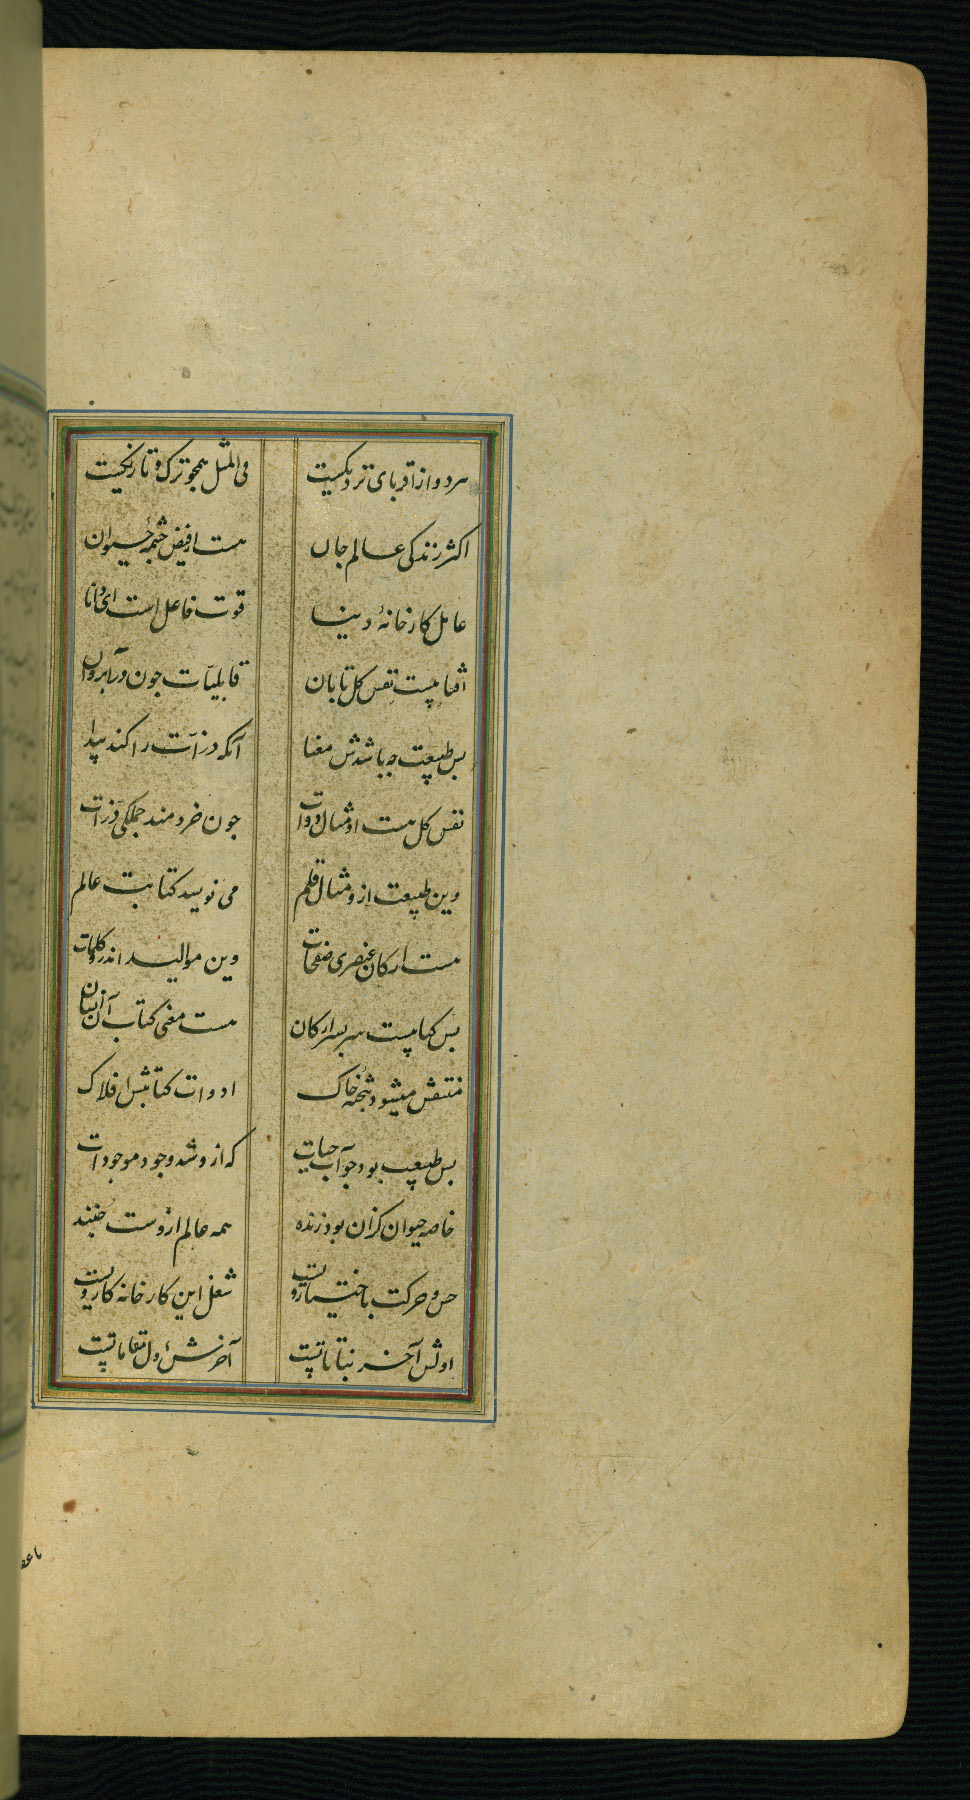 هر دو از اقربای نزدیکیست فی المثل همچو ترک و تازیکیست
اکثر زندکی عالم جان هست از فیض چشمه حیوان
عامل کارخانهٔ دنیا قوت فاعل است ای دانا
آفتابیست نفس کل تابان قابلیّات جون در آب روان
بس طبیعت جه باشدش معنا آنکه ذرّات را کند پیدا
نفس کل هست او مثال دوات جون خردمند جملکی ذرّات
وین طبیعت ازو مثال قلم می نویسد کتابت عالم
هست ارکان عنصری صفحات وین موالید اندرو کلمات
بس کتابیست سربسر ارکان هست معنی کتاب آن انسان
منتقش میشود تخته خاک ادوات کتابتش افلاک
بس طبیعت بود جو آب حیات که ازو شد وجود موجودات
خاصه حیوان کزان بود زنده همه عالم ازوست جنبنده
حس و حرکت باختیار ویست شغل این کارخانه کار ویست
اولش آخر نباتاتیست آخرش اول مقاماتیست